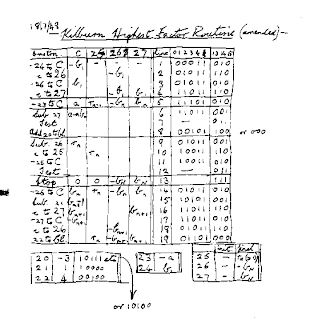 18/7/48
Kilburn Highest Factor Routine (amended)-
function C 25 26 27 line 01234 131415
-24 to C -b1 1 00011 010
c to 26 -b1 2 01011 110
-26 to C b1 3 01011 010
c to 27 -b1 b1 4 11011 110
-23 to C a Tn-1 -bn bn 5 11101 010
sub. 27 a-bn 6 11011 001
Test 7 — 011
add 20 to bl. 8 00101 100 or 000
sub. 26 rn 9 01011 001
c to 25 rn 10 10011 110
-25 to C 11 10011 010
Test 12 — 011
Stop 0 0 -bn bn 13 111
-26 to C bn rn -bn bn 14 01011 010
sub. 21 bn+1 15 10101 001
c to 27 bn+1 bn+1 16 11011 110
-27 to C -bn+1 17 11011 010
c to 26 -bn+1 18 01011 110
22 to bl. rn -bn+1 bn+1 19 01101 000
20 -3 10111 etc
21 1 10000
22 4 00100
23 -a
24 b1
init final
25 -
26 - -bn
27 - bn
or 10100